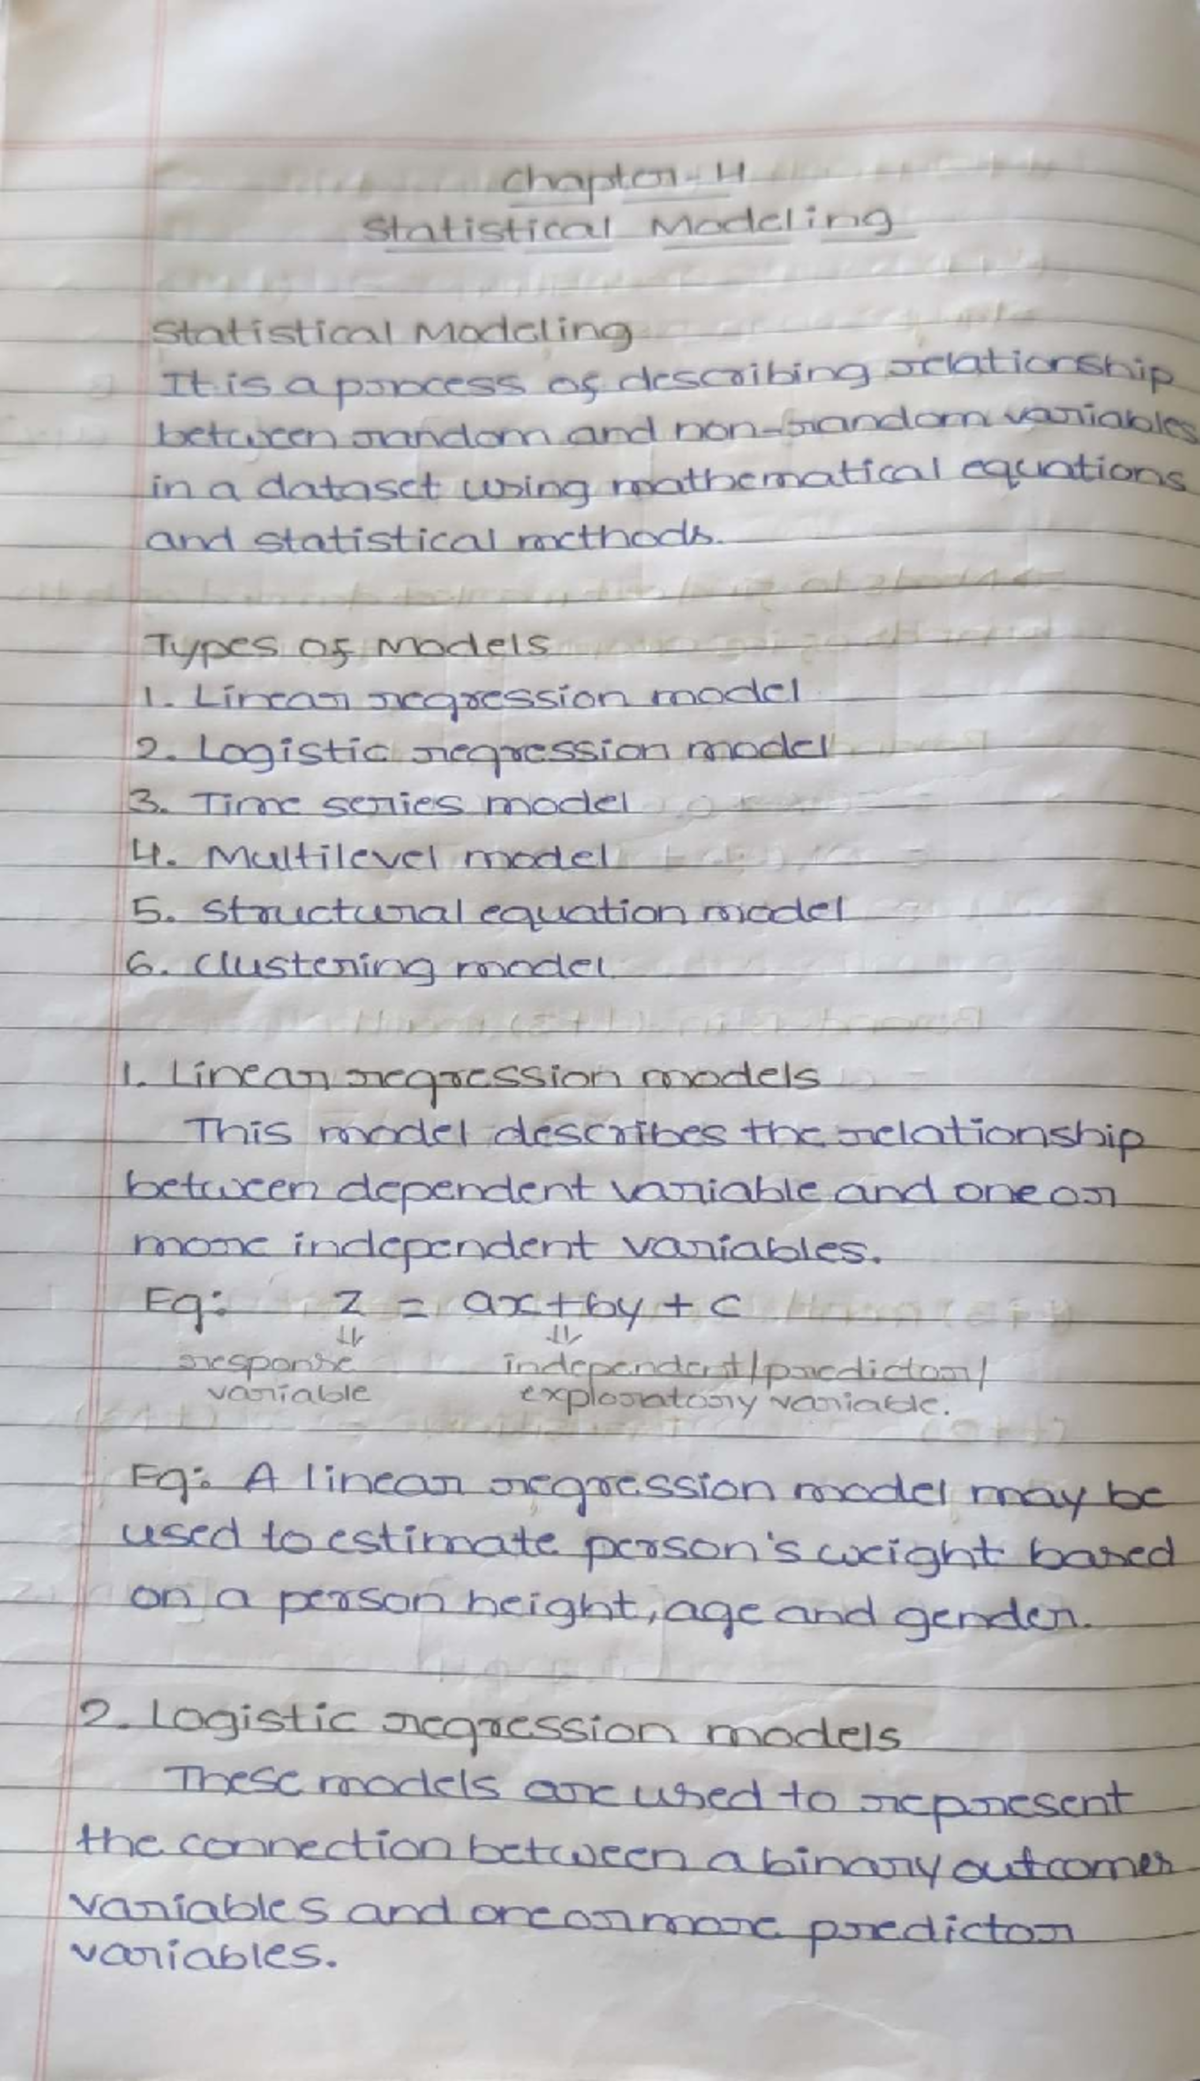 Chapter-4
Statistical Modeling
Statistical Modeling
It is a process of describing relationship
between random and non-random variables
in a dataset using mathematical equations
and statistical methods.
Types of Models
1. Linear regression model
2. Logistic regression model
3. Time series model
4. Multilevel model
5. Structural equation model
6. Clustering model
1. Linear regression models
This model describes the relationship
between dependent variable and one or
more independent variables.
Eg: z = ax+by+c
⇓ ⇓
response independent/predictor/
variable exploratory variable.
Eg: A linear regression model may be
used to estimate person's weight based
on a person height, age and gender.
2. Logistic regression models
These models are used to represent
the connection between a binary outcomes
variables and one or more predictor
variables.